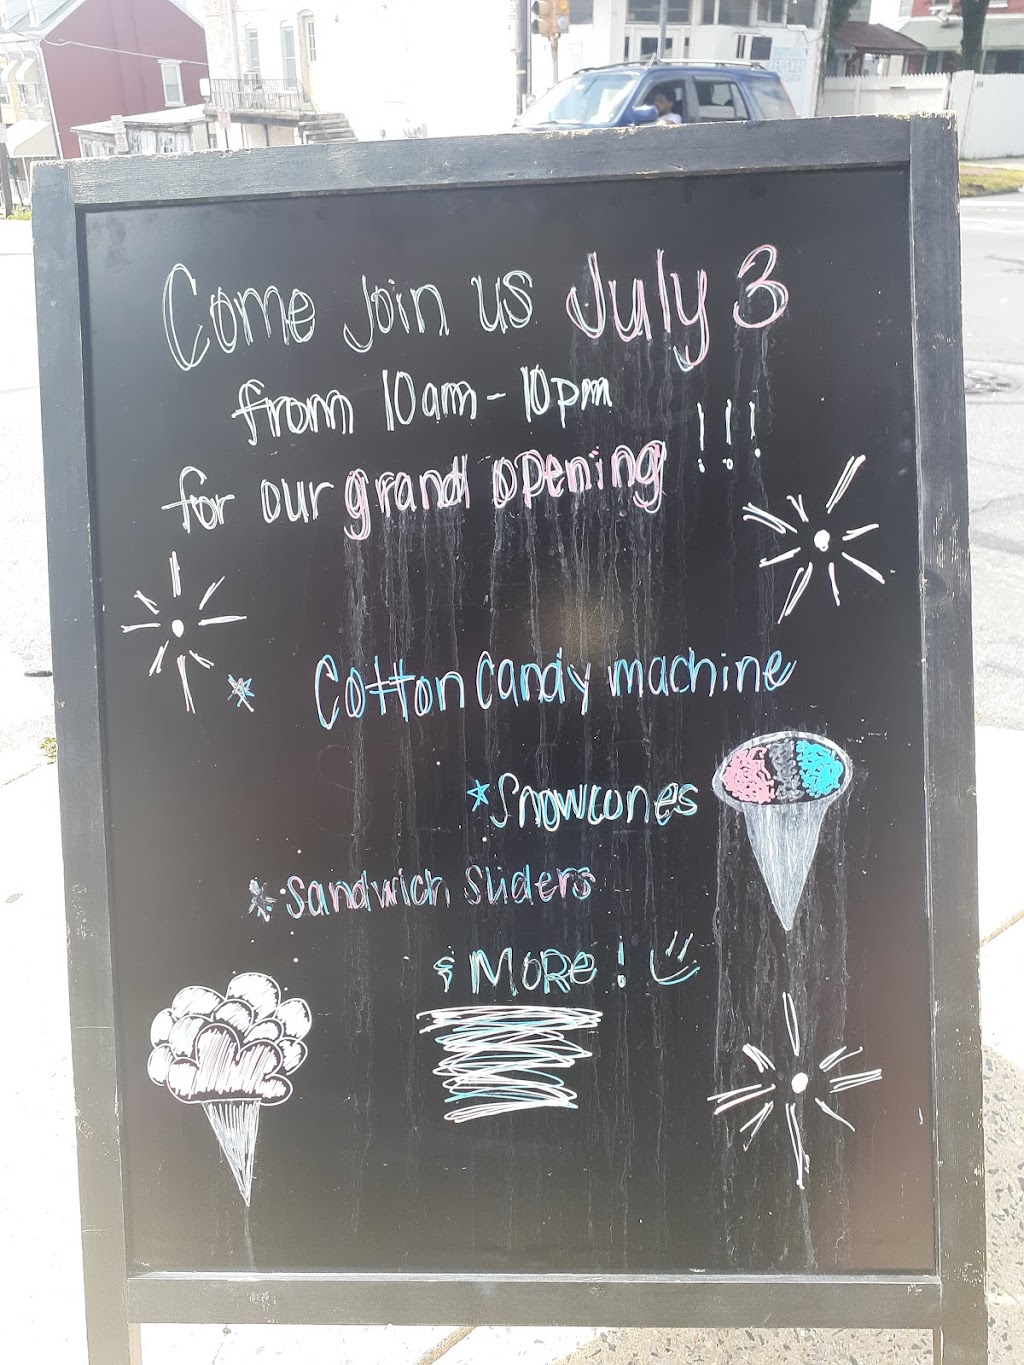 Come join us July 3
from 10am - 10pm
for our grand opening !!!
* Cotton candy machine
* Snowcones
* Sandwich sliders
& MORe ! :)